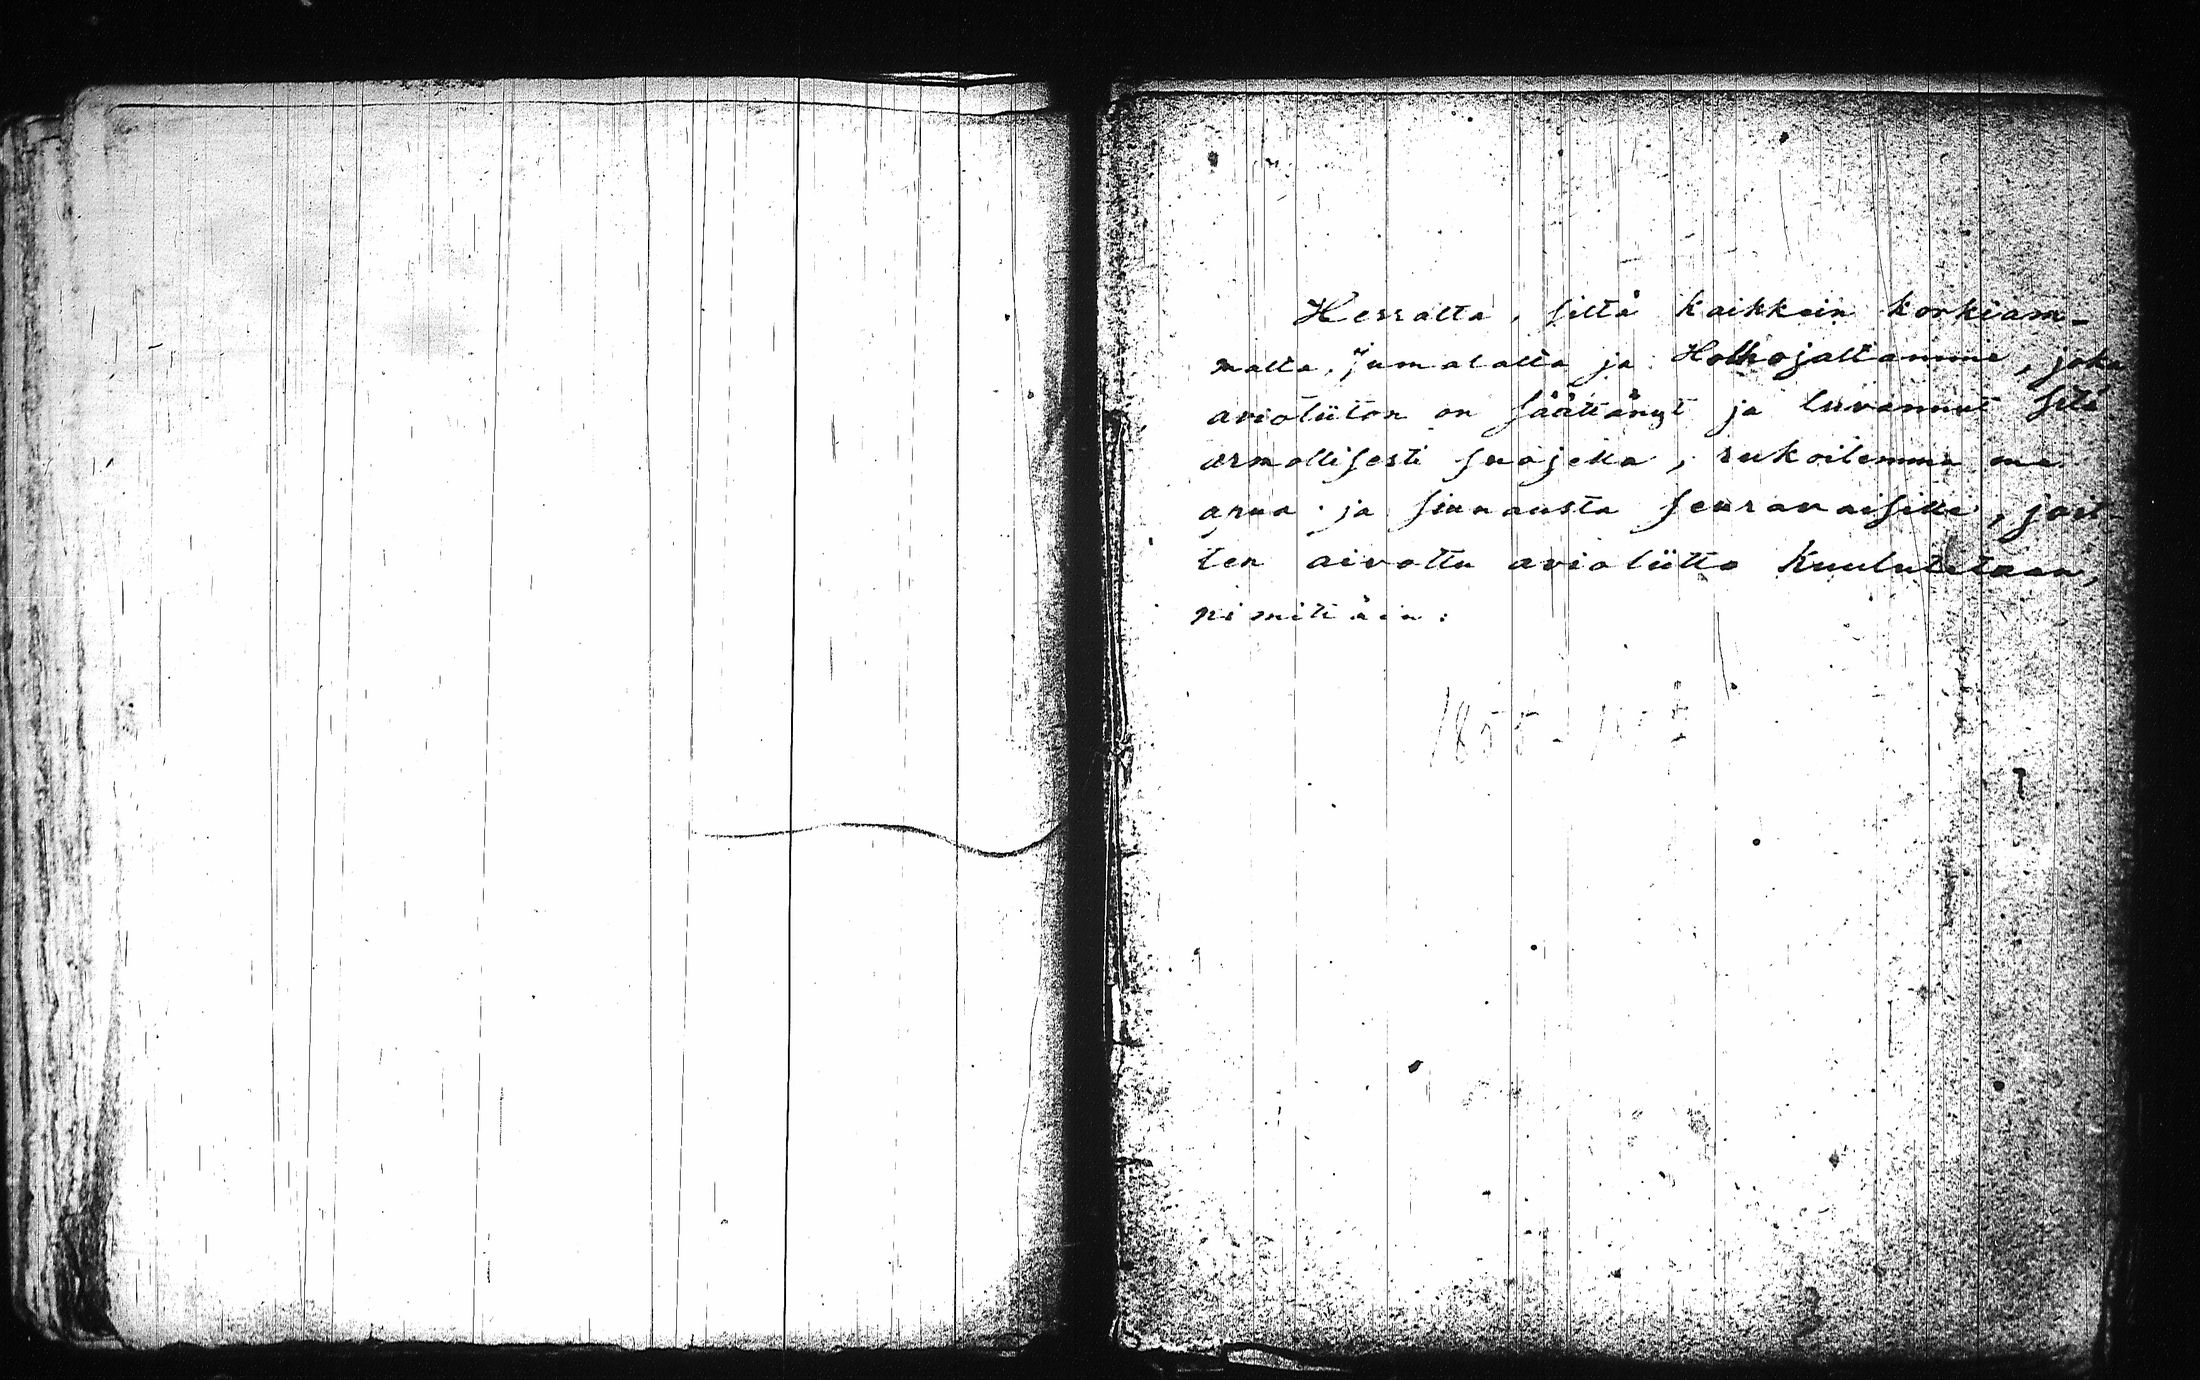 Herralta, siltä kaikkein korkiam-
malta Jumalalta ja Holhojaltamme, joka
avioliiton on säättänyt ja luvannut sitä
armollisesti suojella, rukoilemme me
armoa ja siunausta seuravaisille, joil-
ten aivottu avioliitto kuulutetaan,
nimittäin:
1855 -